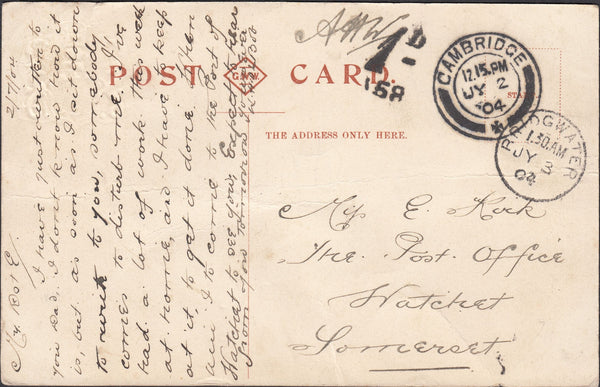 POST CARD.
G.W.R.
THE ADDRESS ONLY HERE.
1D
168
CAMBRIDGE
12.15.PM
JY 2
04
BRIDGWATER
1.30.AM
JY 3
04
Miss E.
The Post Office
Watchet
Somerset
2/7/04
My
I have just written to
you Dad, I don't know how it
is, but as soon as I sit down
to write to you, somebody
comes to disturb me. I've
had a lot of work this week
at home, and I have to keep
at it, to get it done. When
am I to come to the Port of
Watchet to see you. Expect to hear
from you tomorrow